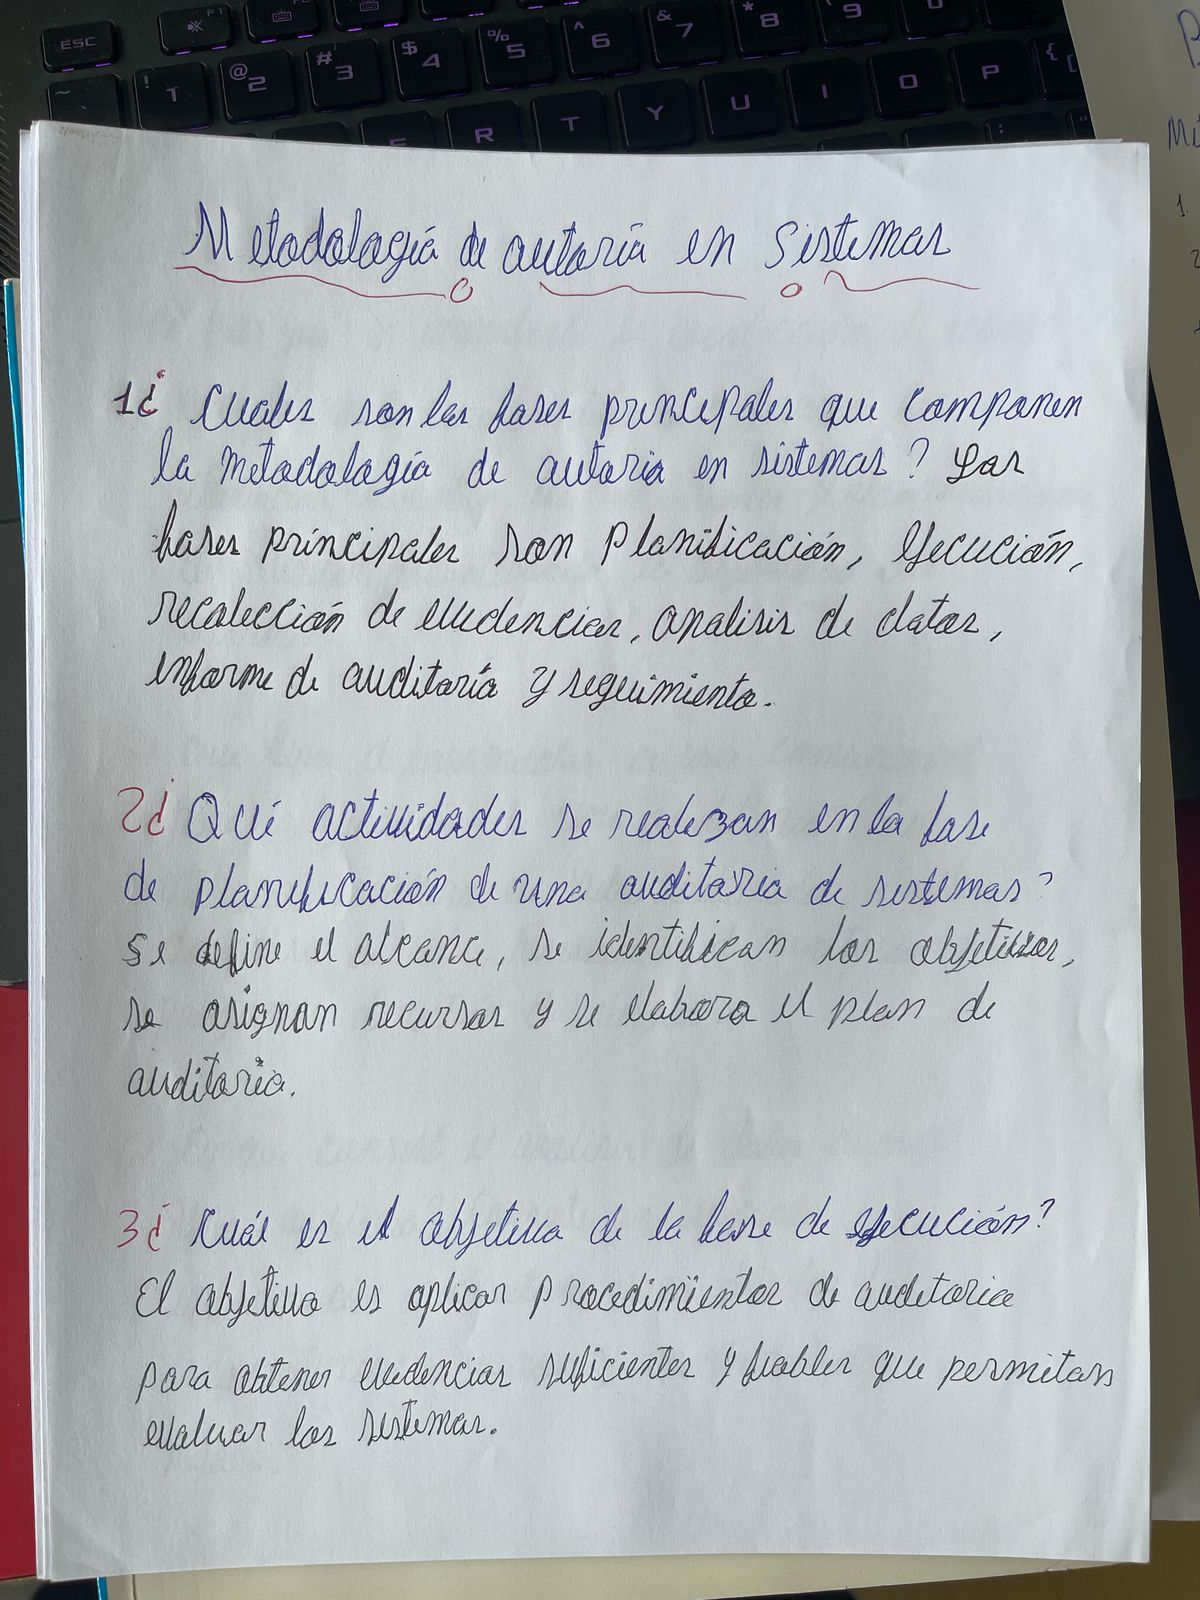 ESC
F1
! 1
@ 2
# 3
$ 4
% 5
^ 6
& 7
* 8
9
~
E R T Y U I O P { [
Metodología de autoría en sistemas
1¿ Cuales son las fases principales que componen
la metodología de autoria en sistemas? Las
fases principales son planificación, ejecución,
recolección de evidencias, analisis de datos,
informe de auditoría y seguimiento.
2¿ Qué actividades se realizan en la fase
de planificación de una auditoria de sistemas?
se define el alcance, se identifican los objetivos,
se asignan recursos y se elabora el plan de
auditoria.
3¿ Cuál es el objetivo de la fase de ejecución?
El objetivo es aplicar procedimientos de auditoria
para obtener evidencias suficientes y fiables que permitan
evaluar los sistemas.
1.